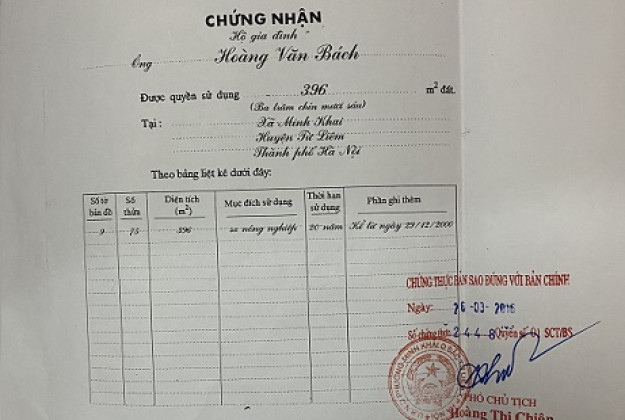 CHỨNG NHẬN
Hộ gia đình
Ông Hoàng Văn Bách
Được quyền sử dụng 396 m² đất.
(Ba trăm chín mươi sáu)
Tại: Xã Minh Khai
Huyện Từ Liêm
Thành phố Hà Nội
Theo bảng liệt kê dưới đây:
Số tờ bản đồ Số thửa Diện tích (m²) Mục đích sử dụng Thời hạn sử dụng Phần ghi thêm
9 75 396 sx nông nghiệp 20 năm Kể từ ngày 29/12/2000
CHỨNG THỰC BẢN SAO ĐÚNG VỚI BẢN CHÍNH
Ngày: 26-03-2016
Số chứng thực 2448 Quyển số 01 SCT/BS
PHÓ CHỦ TỊCH
Hoàng Thị Chiên